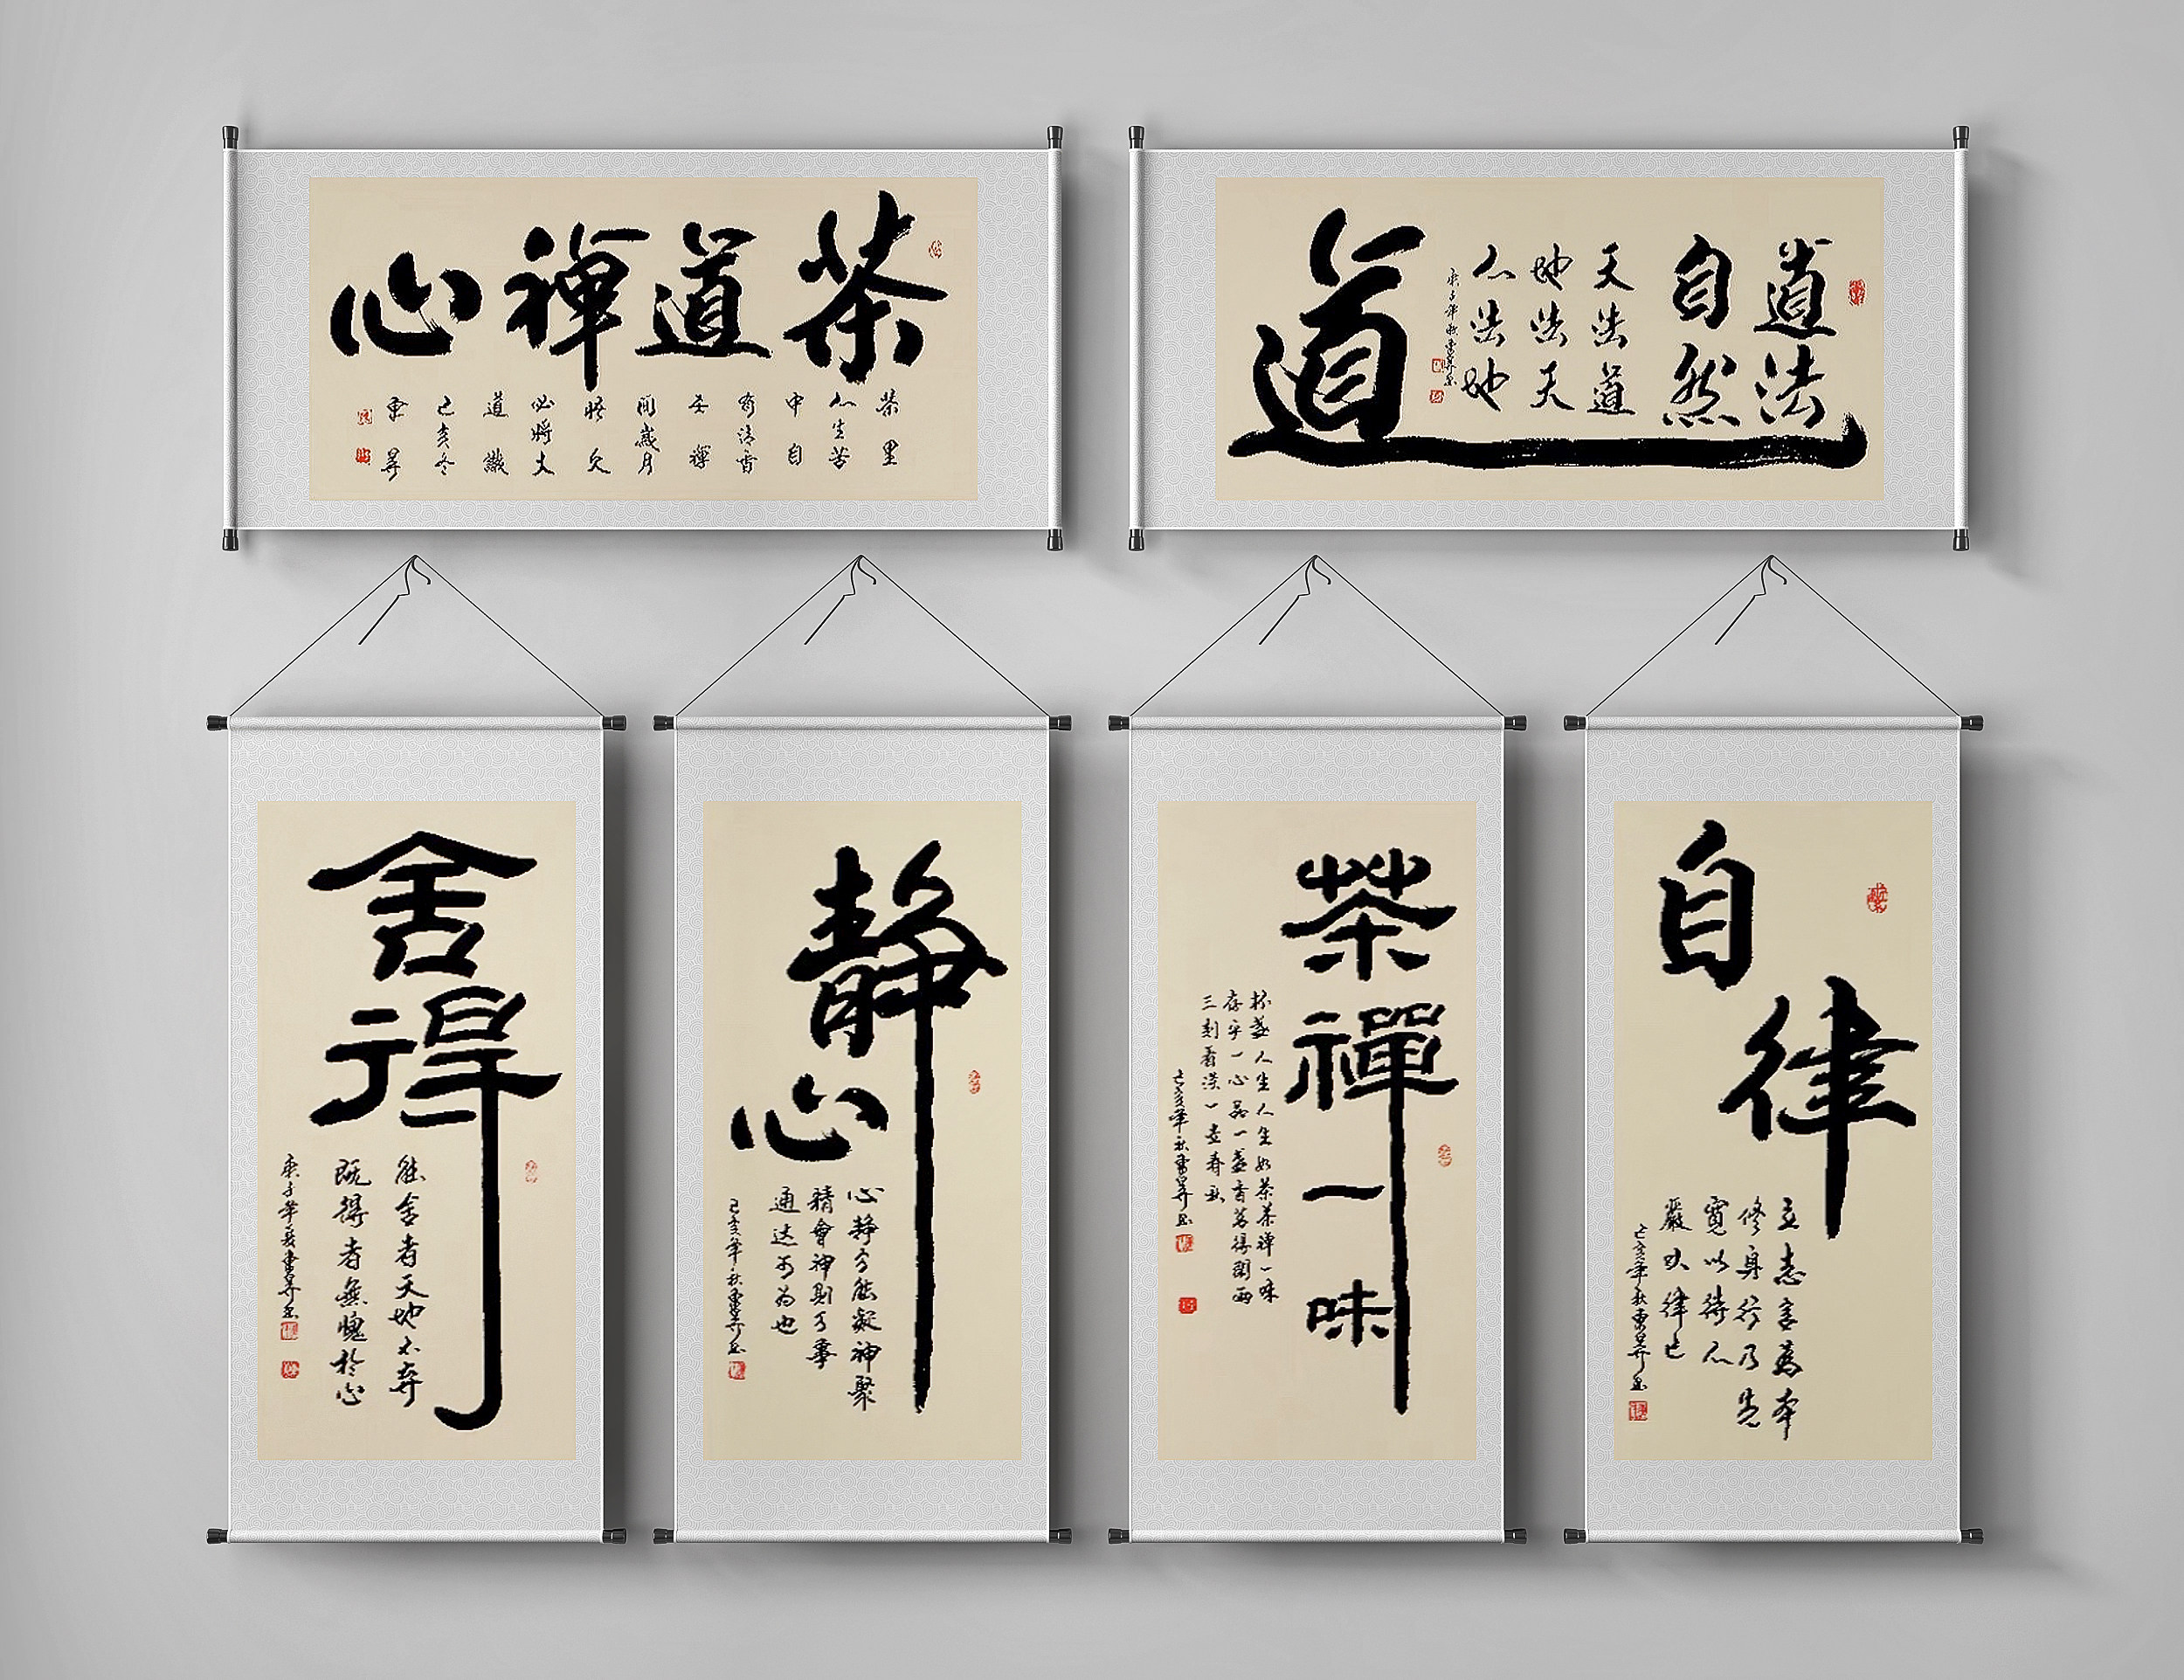 茶道禪心
茶里
人生苦
中自
有清香
禪
間歲月
悟久
必將大
道
己亥冬
東昇
道法
自然
天法道
地法天
人法地
庚子年秋東昇書
道
舍得
能舍者天地不弃
既得者無愧於心
庚子年夏東昇書
靜心
心静方能凝神聚
精會神則万事
通达可为也
己亥年秋東昇書
茶禪一味
杯盏人生人生如茶茶禅一味
存乎一心品一盏香茗得閑两
三刻看淡一壶春秋
己亥年秋東昇書
自律
立志言為本
修身行乃先
寬以待人
嚴以律己
己亥年秋東昇書